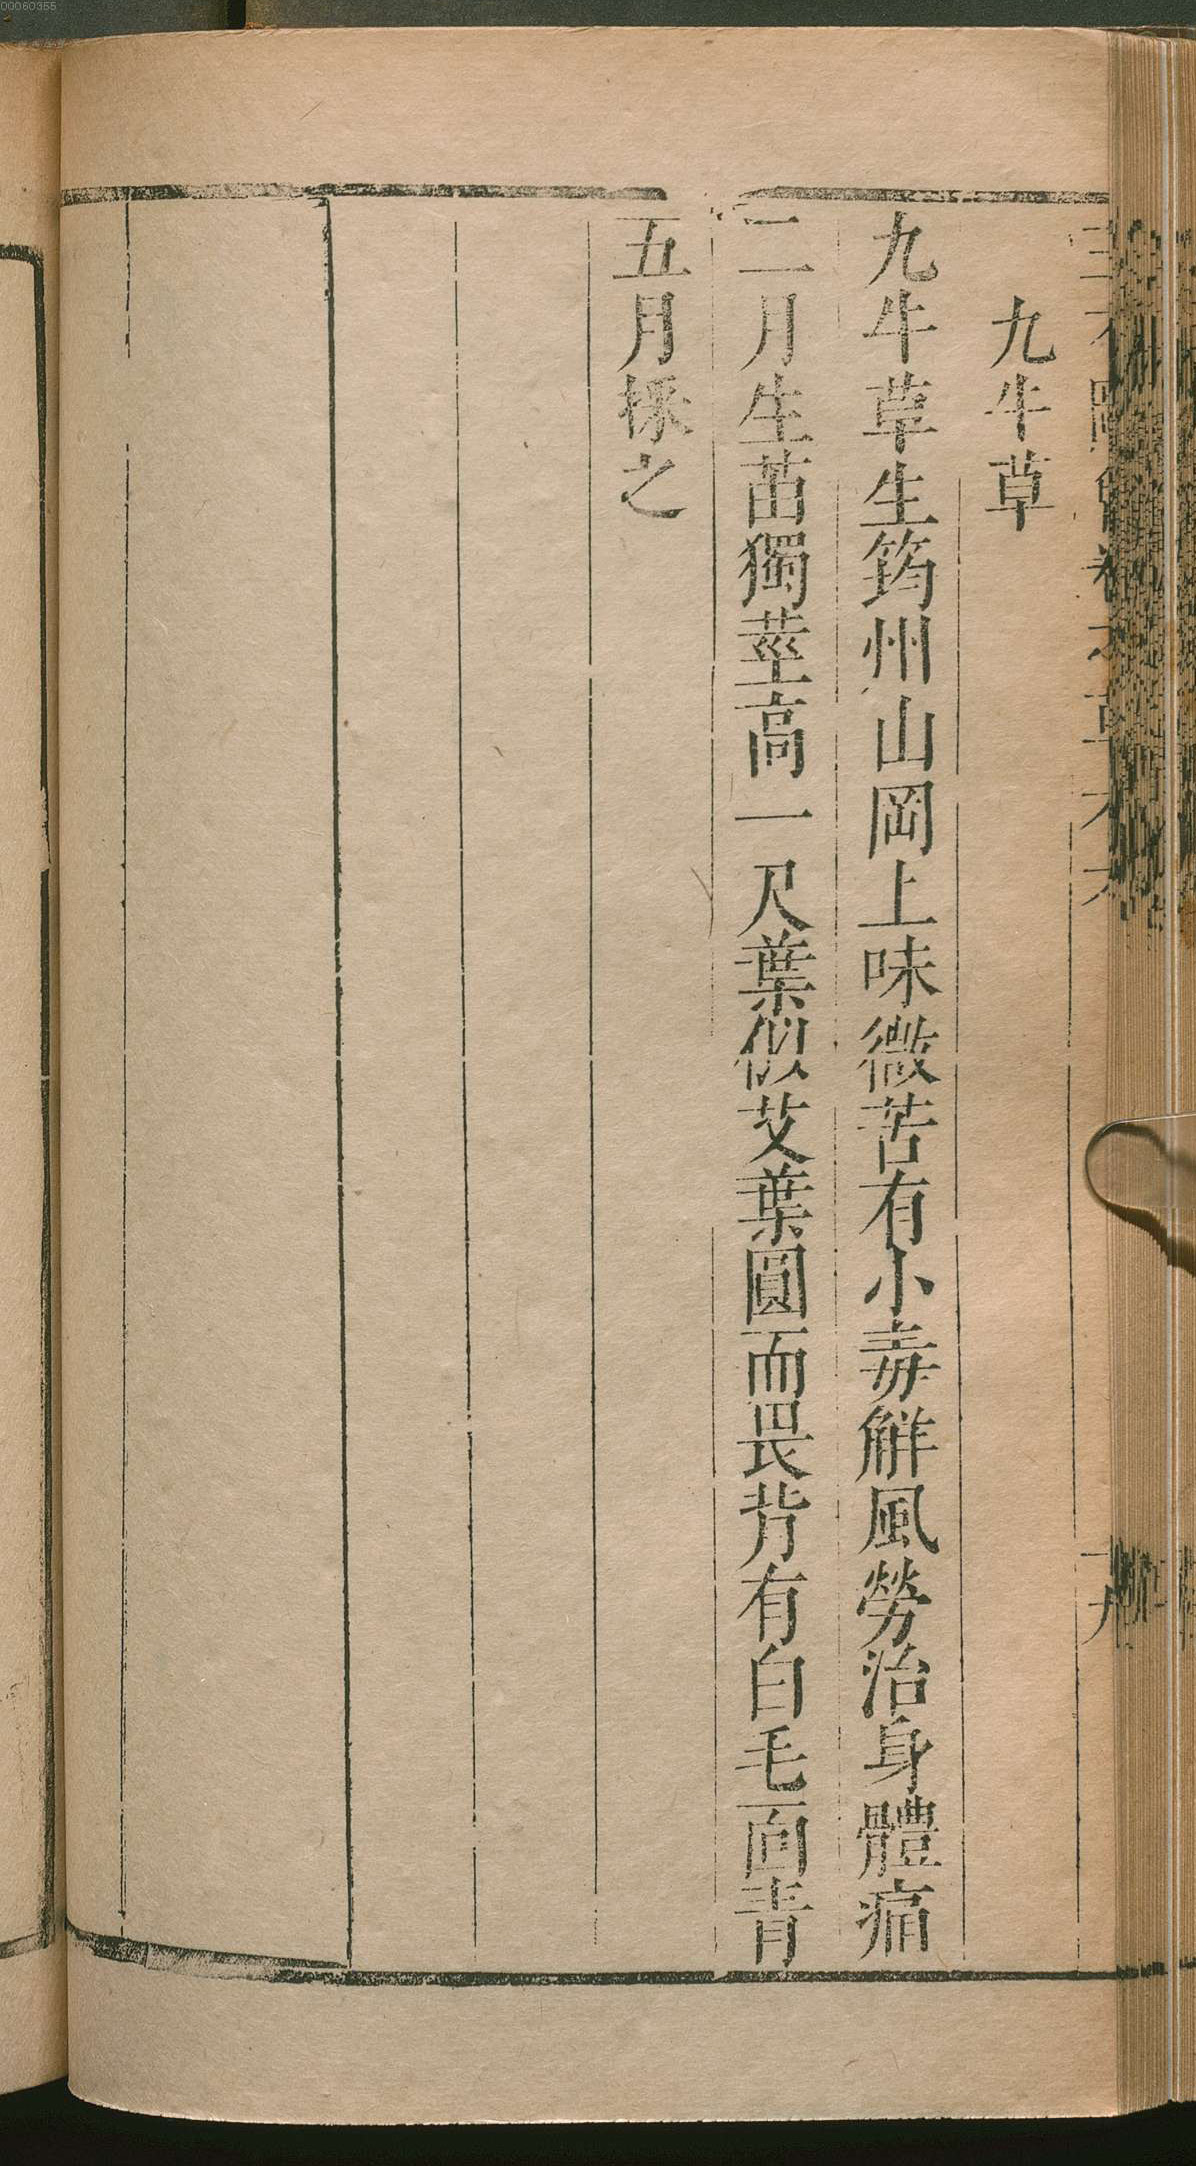 00060355
九牛草
九牛草生筠州山岡上味微苦有小毒解風勞治身體痛
二月生苗獨莖高一尺葉似艾葉圓而畏背有白毛面青
五月採之